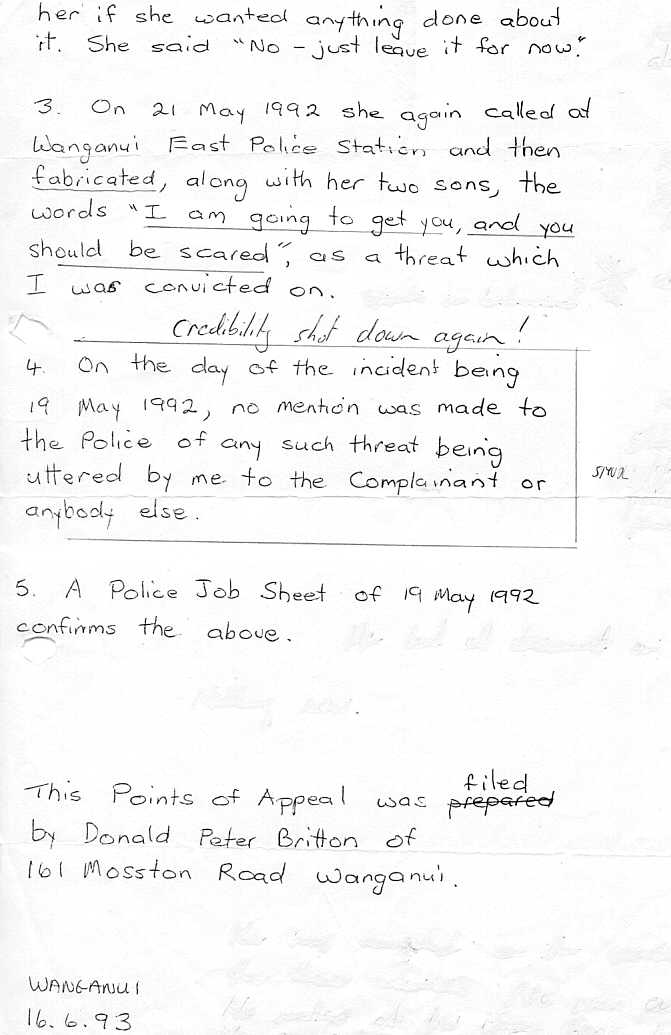 her if she wanted anything done about
it. She said "No - just leave it for now."
3. On 21 May 1992 she again called at
Wanganui East Police Station and then
fabricated, along with her two sons, the
words "I am going to get you, and you
should be scared", as a threat which
I was convicted on.
Credibility shot down again!
4. On the day of the incident being
19 May 1992, no mention was made to
the Police of any such threat being
uttered by me to the Complainant or
anybody else.
5. A Police Job Sheet of 19 May 1992
confirms the above.
filed
This Points of Appeal was prepared
by Donald Peter Britton of
161 Mosston Road Wanganui.
WANGANUI
16.6.93